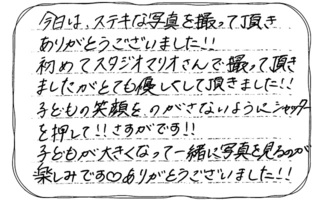 今日は、ステキな写真を撮って頂き
ありがとうございました!!
初めてスタジオマリオさんで撮って頂き
ましたがとても優しくして頂きました!!
子どもの笑顔をのがさないようにシャッター
を押して!!さすがです!!
子どもが大きくなって一緒に写真を見るのが
楽しみです♡ありがとうございました!!